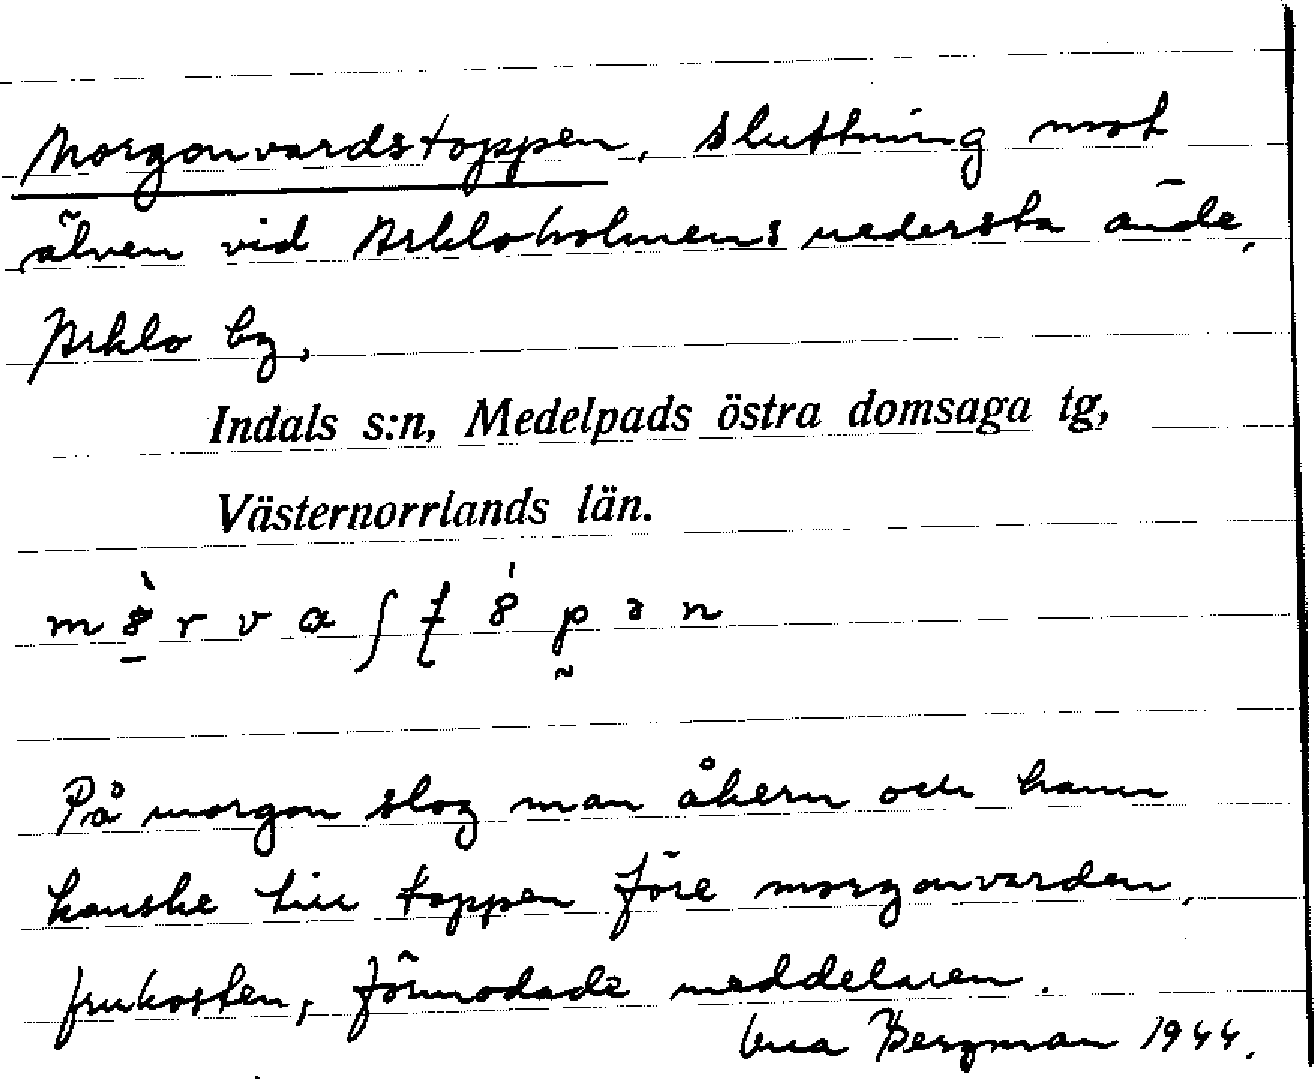 Morgonvardstoppen, sluttning mot
älven vid Arkloholmens nedersta ände,
Arklo by,
Indals s:n, Medelpads östra domsaga tg,
Västernorrlands län.
På morgon slog man åkern och hann
kanske till toppen före morgonvarden,
frukosten, förmodade meddelaren.
Bergman 1944.